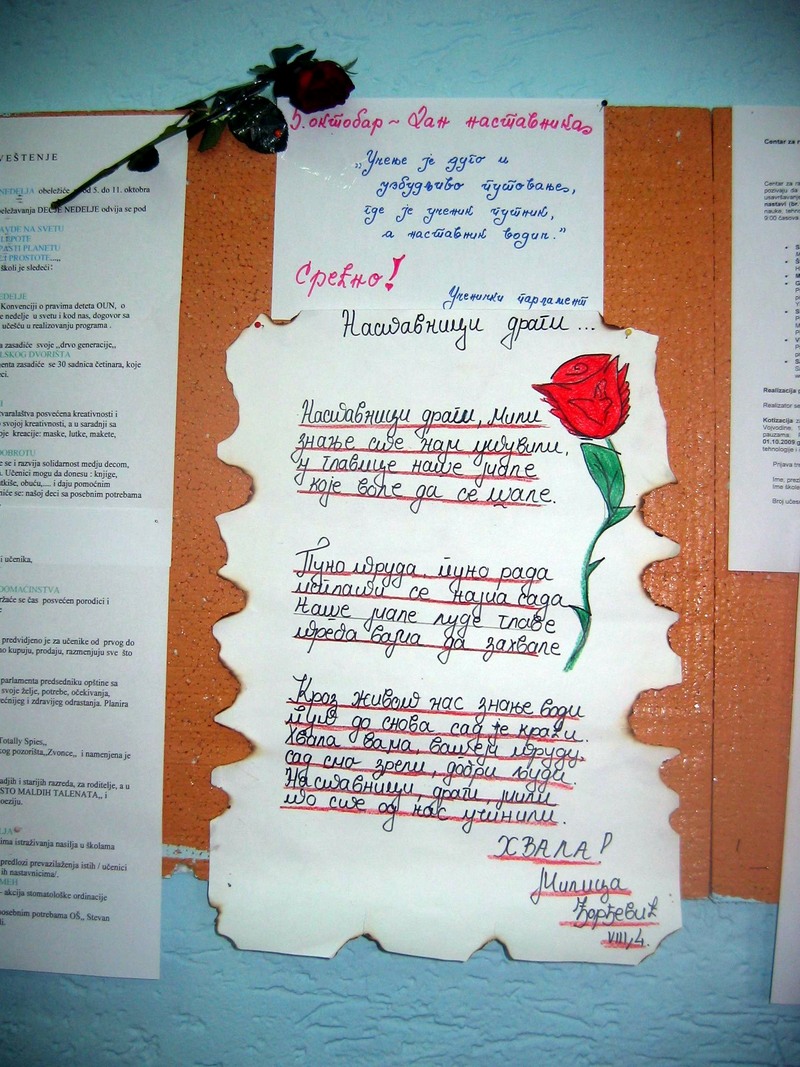 VEŠTENJE
NEDELJA obeležiće od 5. do 11. oktobra
beležavanja DEČJE NEDELJE odvija se pod
AVDE NA SVETU
LEPOTE
PASTI PLANETU
E I PROSTOTE,,,,
školi je sledeći:
EDELJE
Konvenciji o pravima deteta OUN, o
e nedelje u svetu i kod nas, dogovor sa
učešću u realizovanju programa .
a zasadiće svoje ,,drvo generacije,,
LSKOG DVORIŠTA
menta zasadiće se 30 sadnica četinara, koje
ci.
tvaralaštva posvećena kreativnosti i
svojoj kreativnosti, a u saradnji sa
oje kreacije: maske, lutke, makete,
DOBROTU
e se i razvija solidarnost medju decom,
. Učenici mogu da donesu : knjige,
tkiše, obuću,.... i daju pomoćnim
niće se: našoj deci sa posebnim potrebama
i učenika,
DOMAĆINSTVA
ržaće se čas posvećen porodici i
predvidjeno je za učenike od prvog do
no kupuju, prodaju, razmenjuju sve što
parlamenta predsedniku opštine sa
svoje želje, potrebe, očekivanja,
rećnijeg i zdravijeg odrastanja. Planira
Totally Spies,,
kog pozorišta,,Zvonce,, i namenjena je
adjih i starijih razreda, za roditelje, a u
STO MALDIH TALENATA,, i
oeziju.
LJA
ima istraživanja nasilja u školama
predlozi prevazilaženja istih / učenici
ih nastavnicima/.
MEH
- akcija stomatološke ordinacije
posebnim potrebama OŠ,, Stevan
di.
5. октобар ~ Дан наставника
„Учење је дуго и
узбудљиво путовање,
где је ученик путник,
а наставник водич.”
Срећно!
Ученички парламент
Наставници драги...
Наставници драги, мили
знање сте нам улували,
у главице наше мале
које воле да се шале.
Пуно труда, пуно рада
исплати се најла сада
Наше мале луде главе
треба вама да захвале
Кроз живот нас знање води
пут до снова сад је краћи.
Хвала вама, вашем труду,
сад смо зрели, добри људи.
Наставници драги, мили
то сте од нас учинили.
ХВАЛА!
Милица
Ђорђевић
VIII4.
Centar za r
Centar za ra
pozivaju da
usavršavanje
nastavi (br.
nauke: tehn
9:00 časova
Realizacija
Realizator se
Kotizacija z
Vojvodine, 1
pauzama. M
01.10.2009.g
tehnologije i
Prijava tre
Ime, prezi
Ime škole
Broj učes